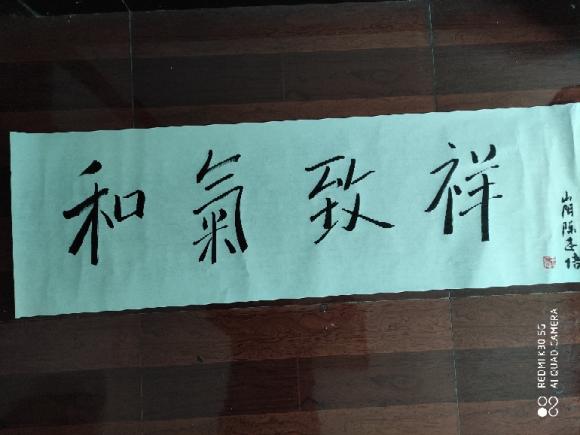 和氣致祥
山阴陈
REDMI K30 5G
AI QUAD CAMERA